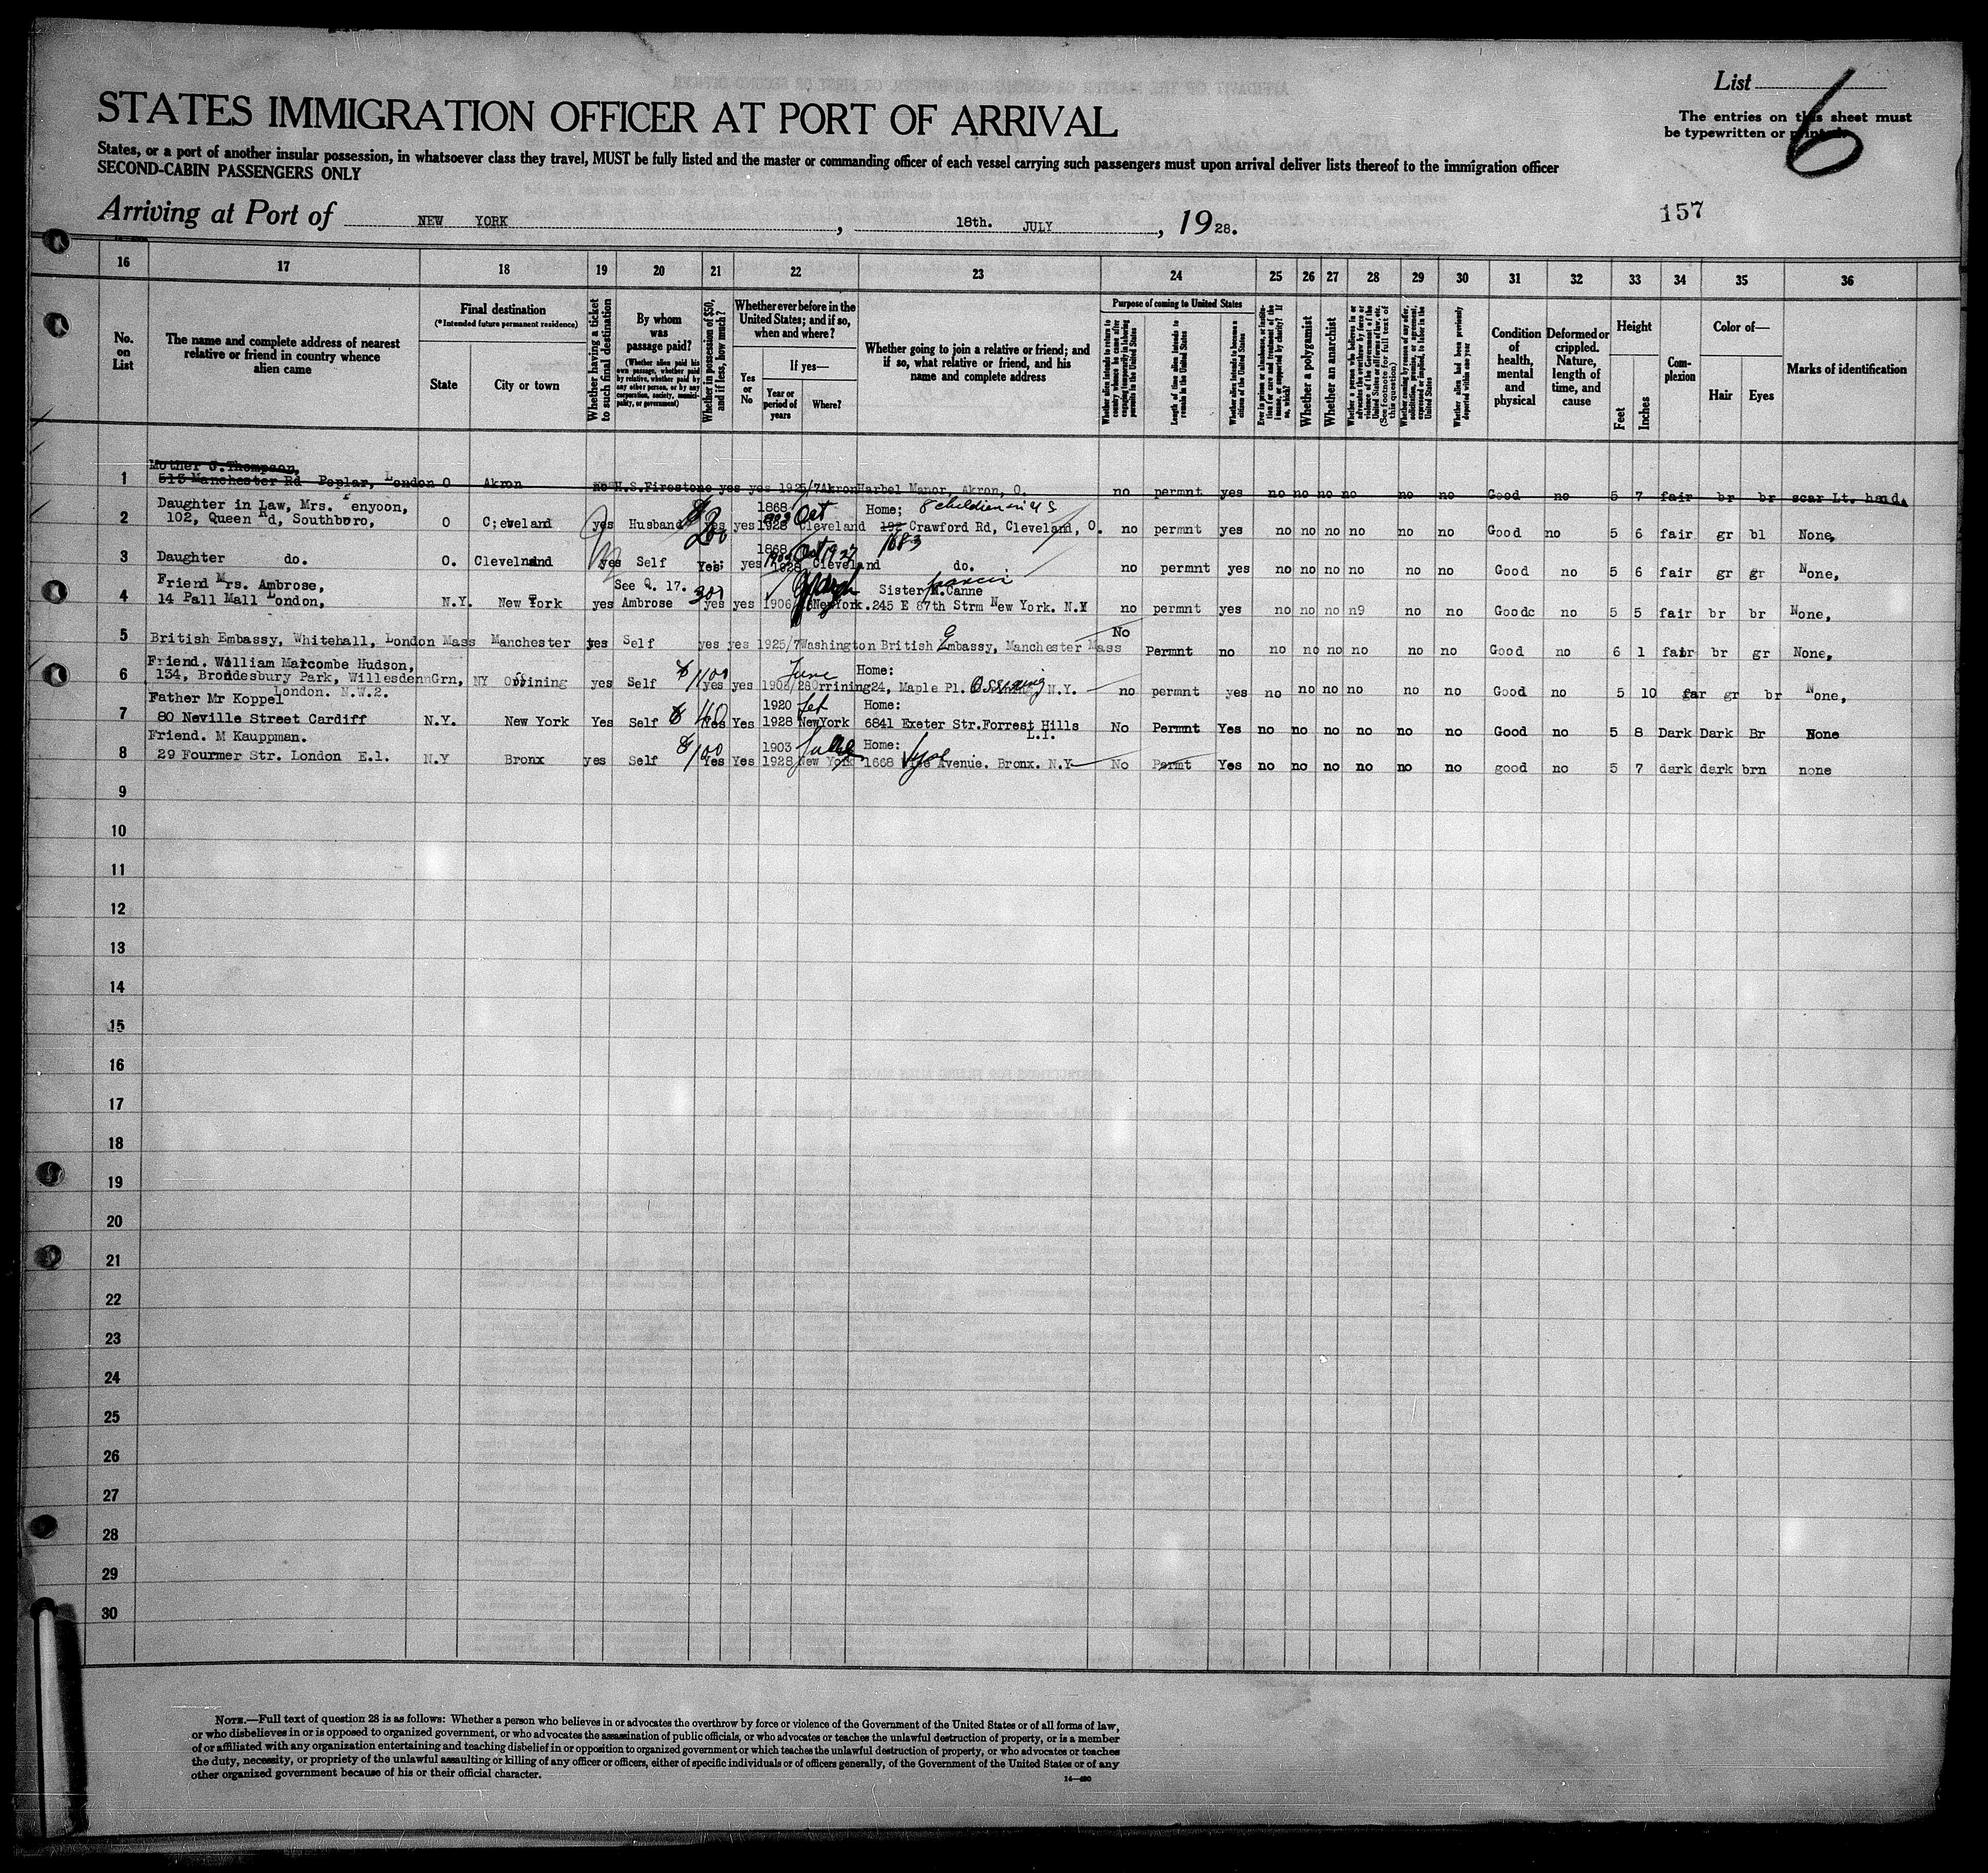 List 6
STATES IMMIGRATION OFFICER AT PORT OF ARRIVAL
The entries on this sheet must
be typewritten or printed.
States, or a port of another insular possession, in whatsoever class they travel, MUST be fully listed and the master or commanding officer of each vessel carrying such passengers must upon arrival deliver lists thereof to the immigration officer
SECOND-CABIN PASSENGERS ONLY
Arriving at Port of NEW YORK, 18th. JULY, 1928.
157
16 17 18 19 20 21 22 23 24 25 26 27 28 29 30 31 32 33 34 35 36
No. on List
The name and complete address of nearest relative or friend in country whence alien came
Final destination
(*Intended future permanent residence)
State
City or town
Whether having a ticket to such final destination
By whom was passage paid?
(Whether alien paid his own passage, whether paid by relative, whether paid by any other person, or by any corporation, society, municipality, or government)
Whether in possession of $50, and if less, how much?
Whether ever before in the United States; and if so, when and where?
Yes or No
If yes—
Year or period of years
Where?
Whether going to join a relative or friend; and if so, what relative or friend, and his name and complete address
Purpose of coming to United States
Length of time alien intends to remain in the United States
Whether alien intends to become a citizen of the United States
Whether a polygamist
Whether an anarchist
Condition of health, mental and physical
Deformed or crippled. Nature, length of time, and cause
Height
Feet
Inches
Complexion
Color of—
Hair
Eyes
Marks of identification
Mother J.Thompson,
1 513 Manchester Rd Poplar, London O Akron no H.S.Firestone yes yes 1925/7 Akron Harbel Manor, Akron, O. no permnt yes no no no no no no Good no 5 7 fair br br scar Lt. hand.
Daughter in Law, Mrs. enyoon, 1868 Home; 8 children in US
2 102, Queen Rd, Southboro, O C;eveland yes Husband $200 yes yes 1928 Oct Cleveland 192 1683 Crawford Rd, Cleveland, O. no permnt yes no no no no no no Good no 5 6 fair gr bl None,
1868
3 Daughter do. O. Cleveland yes Self Yes; yes 1928 Oct 1927 Cleveland do. no permnt yes no no no no no no Good no 5 6 fair gr gr None,
Friend Mrs. Ambrose, See Q. 17. Sister Francis
4 14 Pall Mall London, N.Y. New York yes Ambrose 300 yes yes 1906/28 NewYork. M.Canne 245 E 87th Strm New York. N.Y no permnt yes no no no n9 no no Goodc no 5 5 fair br br None,
5 British Embassy, Whitehall, London Mass Manchester yes Self yes yes 1925/7 Washington British Embassy, Manchester Mass No Permnt no no no no no no no Good no 6 1 fair br gr None,
Friend. William Marcombe Hudson, June Home:
6 134, Brondesbury Park, WillesdennGrn, NY Ossining yes Self $100 yes yes 1902/28 Orrining 24, Maple Pl. Ossining N.Y. no permnt yes no no no no no no Good no 5 10 far gr br None,
London. N.W.2.
Father Mr Koppel 1920 Home:
7 80 Neville Street Cardiff N.Y. New York Yes Self $40 Yes Yes 1928 NewYork 6841 Exeter Str.Forrest Hills L.I. No Permnt Yes no no no no no no Good no 5 8 Dark Dark Br None
Friend. M Kauppman. 1903 Home:
8 29 Fourmer Str. London E.1. N.Y Bronx yes Self $100 Yes Yes 1928 New York 1668 Vyse Avenue. Bronx. N.Y No Permt Yes no no no no no no good no 5 7 dark dark brn none
9
10
11
12
13
14
15
16
17
18
19
20
21
22
23
24
25
26
27
28
29
30
NOTE.—Full text of question 28 is as follows: Whether a person who believes in or advocates the overthrow by force or violence of the Government of the United States or of all forms of law,
or who disbelieves in or is opposed to organized government, or who advocates the assassination of public officials, or who advocates or teaches the unlawful destruction of property, or is a member
of or affiliated with any organization entertaining and teaching disbelief in or opposition to organized government or which teaches the unlawful destruction of property, or who advocates or teaches
the duty, necessity, or propriety of the unlawful assaulting or killing of any officer or officers, either of specific individuals or of officers generally, of the Government of the United States or of any
other organized government because of his or their official character.